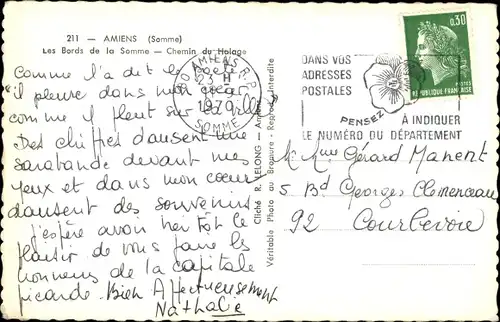 211 - AMIENS (Somme)
Les Bords de la Somme — Chemin du Halage
Comme l'a dit le poète
"il pleure dans mon cœur
comme il pleut sur la ville"
Des chiffres dansent une
sarabande devant mes
yeux et dans mon cœur
dansent des souvenirs
j'espère avoir bientôt le
plaisir de vous faire les
honneurs de la capitale
picarde. Bien Affectueusement
Nathalie
Cliché R. LELONG - Amiens
Véritable Photo au Bromure - Reproduction Interdite
AMIENS R.P.
23 H
1970
SOMME
DANS VOS
ADRESSES
POSTALES
PENSEZ
À INDIQUER
LE NUMÉRO DU DÉPARTEMENT
0,30
POSTES
RÉPUBLIQUE FRANÇAISE
M. Mme Gérard Manent
5 Bd Georges Clemenceau
92 Courbevoie